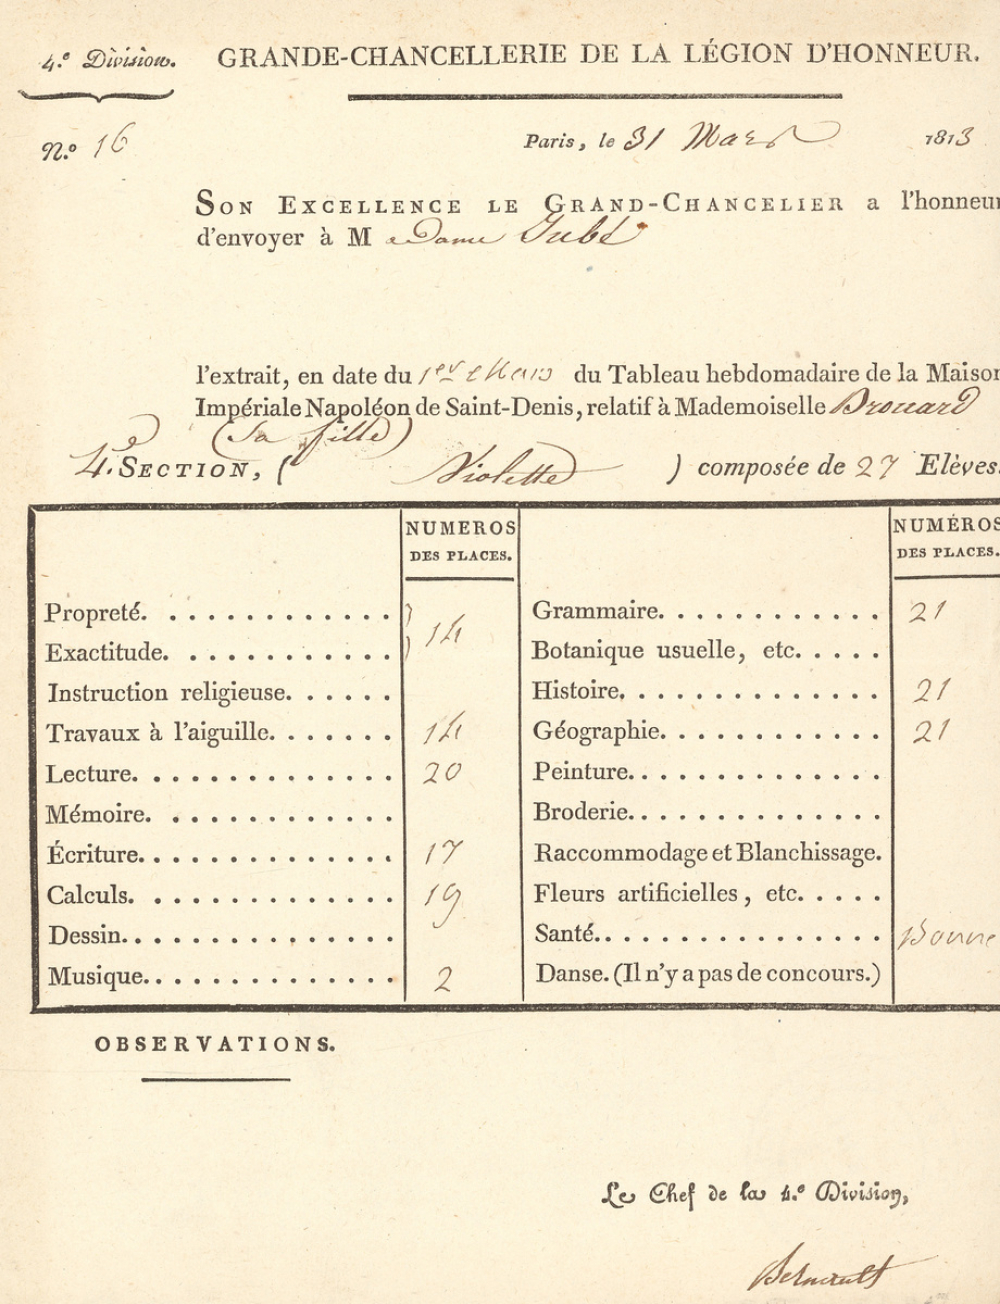 4.e Division. GRANDE-CHANCELLERIE DE LA LÉGION D'HONNEUR.
N.o 16 Paris, le 31 Mars 1813
SON EXCELLENCE LE GRAND-CHANCELIER a l'honneur
d'envoyer à Madame
l'extrait, en date du 1er Mars du Tableau hebdomadaire de la Maison
Impériale Napoléon de Saint-Denis, relatif à Mademoiselle Brouard
(Sa fille)
4.e SECTION, ( Violette ) composée de 27 Elèves.
NUMEROS DES PLACES. NUMÉROS DES PLACES.
Propreté. Grammaire. 21
14
Exactitude. Botanique usuelle, etc.
Instruction religieuse. Histoire. 21
Travaux à l'aiguille. 14 Géographie. 21
Lecture. 20 Peinture.
Mémoire. Broderie.
Écriture. 17 Raccommodage et Blanchissage.
Calculs. 19 Fleurs artificielles, etc.
Dessin. Santé. Bonne
Musique. 2 Danse. (Il n'y a pas de concours.)
OBSERVATIONS.
Le Chef de la 4.e Division,